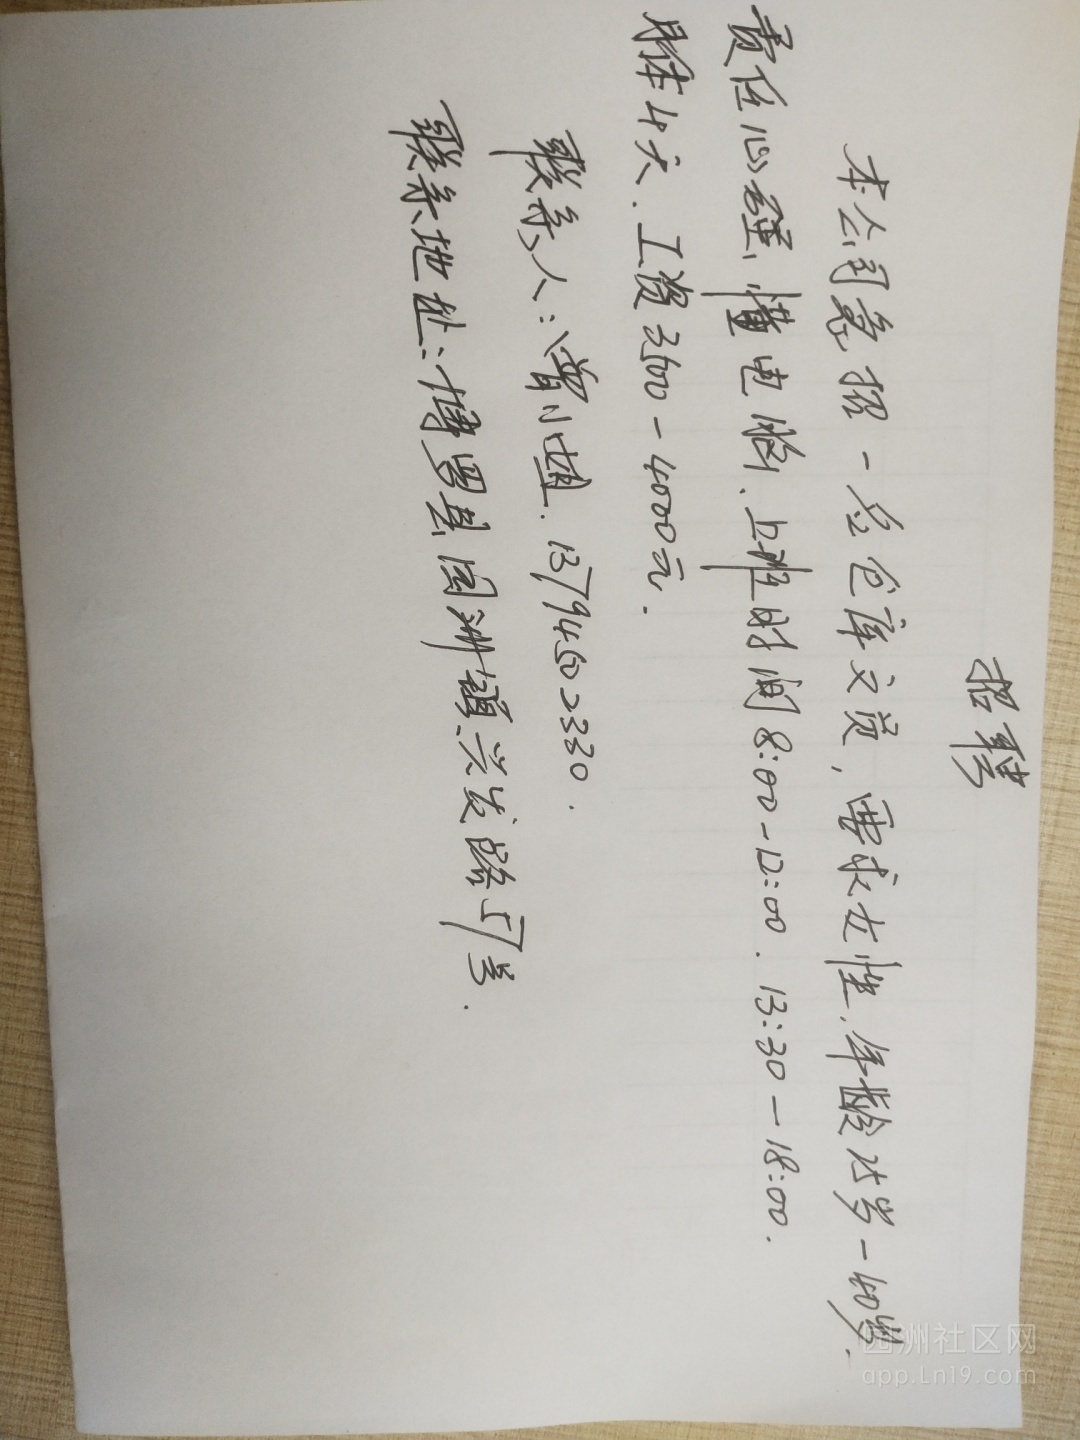 招聘
本公司急招一名仓库文员，要求女性，年龄25岁-40岁.
责任心强，懂电脑、上班时间8:00-12:00. 13:30-18:00.
月休4天、工资3500-4000元.
联系人：曾小姐. 13794502330.
联系地址：博罗县园洲镇兴发路57号.
园洲社区网
app.Ln19.com